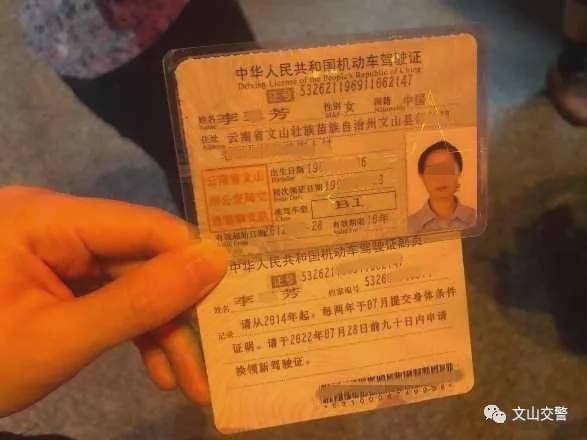 中华人民共和国机动车驾驶证
Driving License of the People's Republic of China
证号
姓名 李 芳 性别 女 国籍 中国
Name Nationality
住址 云南省文山壮族苗族自治州文山县
出生日期
初次领证日期
准驾车型 B1
有效起始日期 2012 28 有效期限 10年
云南省文山
州公安局交
中华人民共和国机动车驾驶证副页
证号
姓名 李 芳 档案编号
记录 请从2014年起，每两年于07月提交身体条件
证明。请于2022年07月28日前九十日内申请
换领新驾驶证。
文山交警